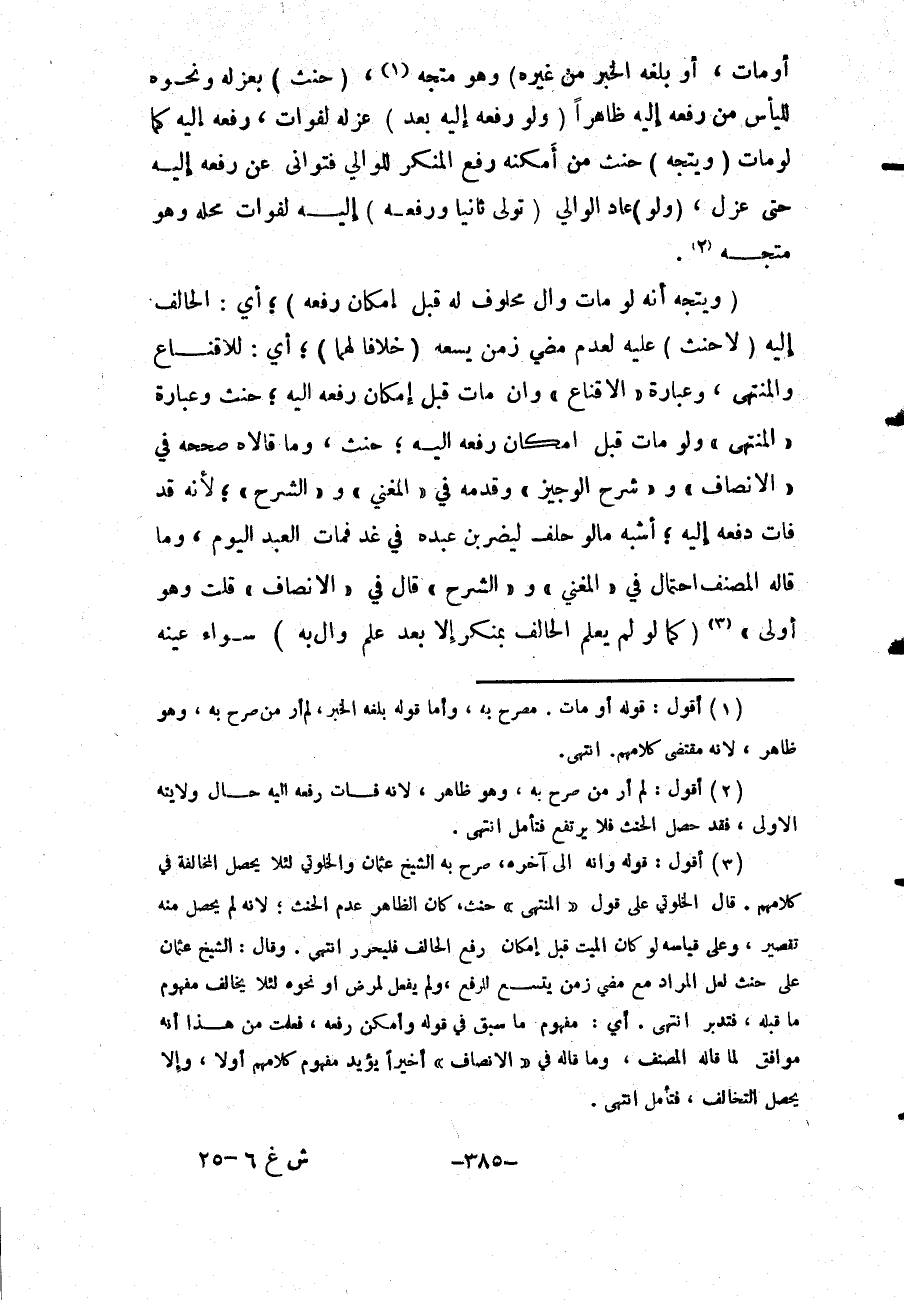 أو مات ، أو بلغه الخبر من غيره) وهو متجه (١) ، ( حنث ) بعزله ونحوه
لليأس من رفعه إليه ظاهراً ( ولو رفعه إليه بعد ) عزله لفوات ، رفعه اليه كما
لو مات ( ويتجه ) حنث من أمكنه رفع المنكر للوالي فتوانى عن رفعه إليه
حتى عزل ، (ولو) عاد الوالي ( تولى ثانيا ورفعه ) إليه لفوات محله وهو
متجه (٢) .
( ويتجه أنه لو مات وال محلوف له قبل امكان رفعه ) ؛ أي : الحالف
إليه ( لا حنث ) عليه لعدم مضي زمن يسعه ( خلافا لهما ) ؛ أي : للاقناع
والمنتهى ، وعبارة « الاقناع » وان مات قبل إمكان رفعه اليه ؛ حنث وعبارة
« المنتهى » ولو مات قبل امكان رفعه اليه ؛ حنث ، وما قالاه صححه في
« الانصاف » و « شرح الوجيز » وقدمه في « المغني » و « الشرح » ؛ لأنه قد
فات دفعه إليه ؛ أشبه مالو حلف ليضربن عبده في غد فمات العبد اليوم ، وما
قاله المصنف احتمال في « المغني » و « الشرح » قال في « الانصاف » قلت وهو
أولى » (٣) ( كما لو لم يعلم الحالف بمنكر إلا بعد علم وال به ) سواء عينه
(١) أقول : قوله أو مات . مصرح به ، وأما قوله بلغه الخبر ، لم أر من صرح به ، وهو
ظاهر ، لانه مقتضى كلامهم. انتهى.
(٢) أقول : لم أر من صرح به ، وهو ظاهر ، لانه فات رفعه اليه حال ولايته
الاولى ، فقد حصل الحنث فلا يرتفع فتأمل انتهى .
(٣) أقول : قوله وانه الى آخره، صرح به الشيخ عثمان والخلوتي لئلا يحصل المخالفة في
كلامهم . قال الخلوتي على قول « المنتهى » حنث، كان الظاهر عدم الحنث ؛ لانه لم يحصل منه
تقصير ، وعلى قياسه لو كان الميت قبل إمكان رفع الحالف فليحرر انتهى . وقال : الشيخ عثمان
على حنث لعل المراد مع مضي زمن يتسع للرفع ،ولم يفعل لمرض او نحوه لئلا يخالف مفهوم
ما قبله ، فتدبر انتهى . أي : مفهوم ما سبق في قوله وأمكن رفعه ، فعلمت من هذا أنه
موافق لما قاله المصنف ، وما قاله في « الانصاف » أخيراً يؤيد مفهوم كلامهم أولا ، وإلا
يحصل التخالف ، فتأمل انتهى .
-٣٨٥- ش غ ٦-٢٥